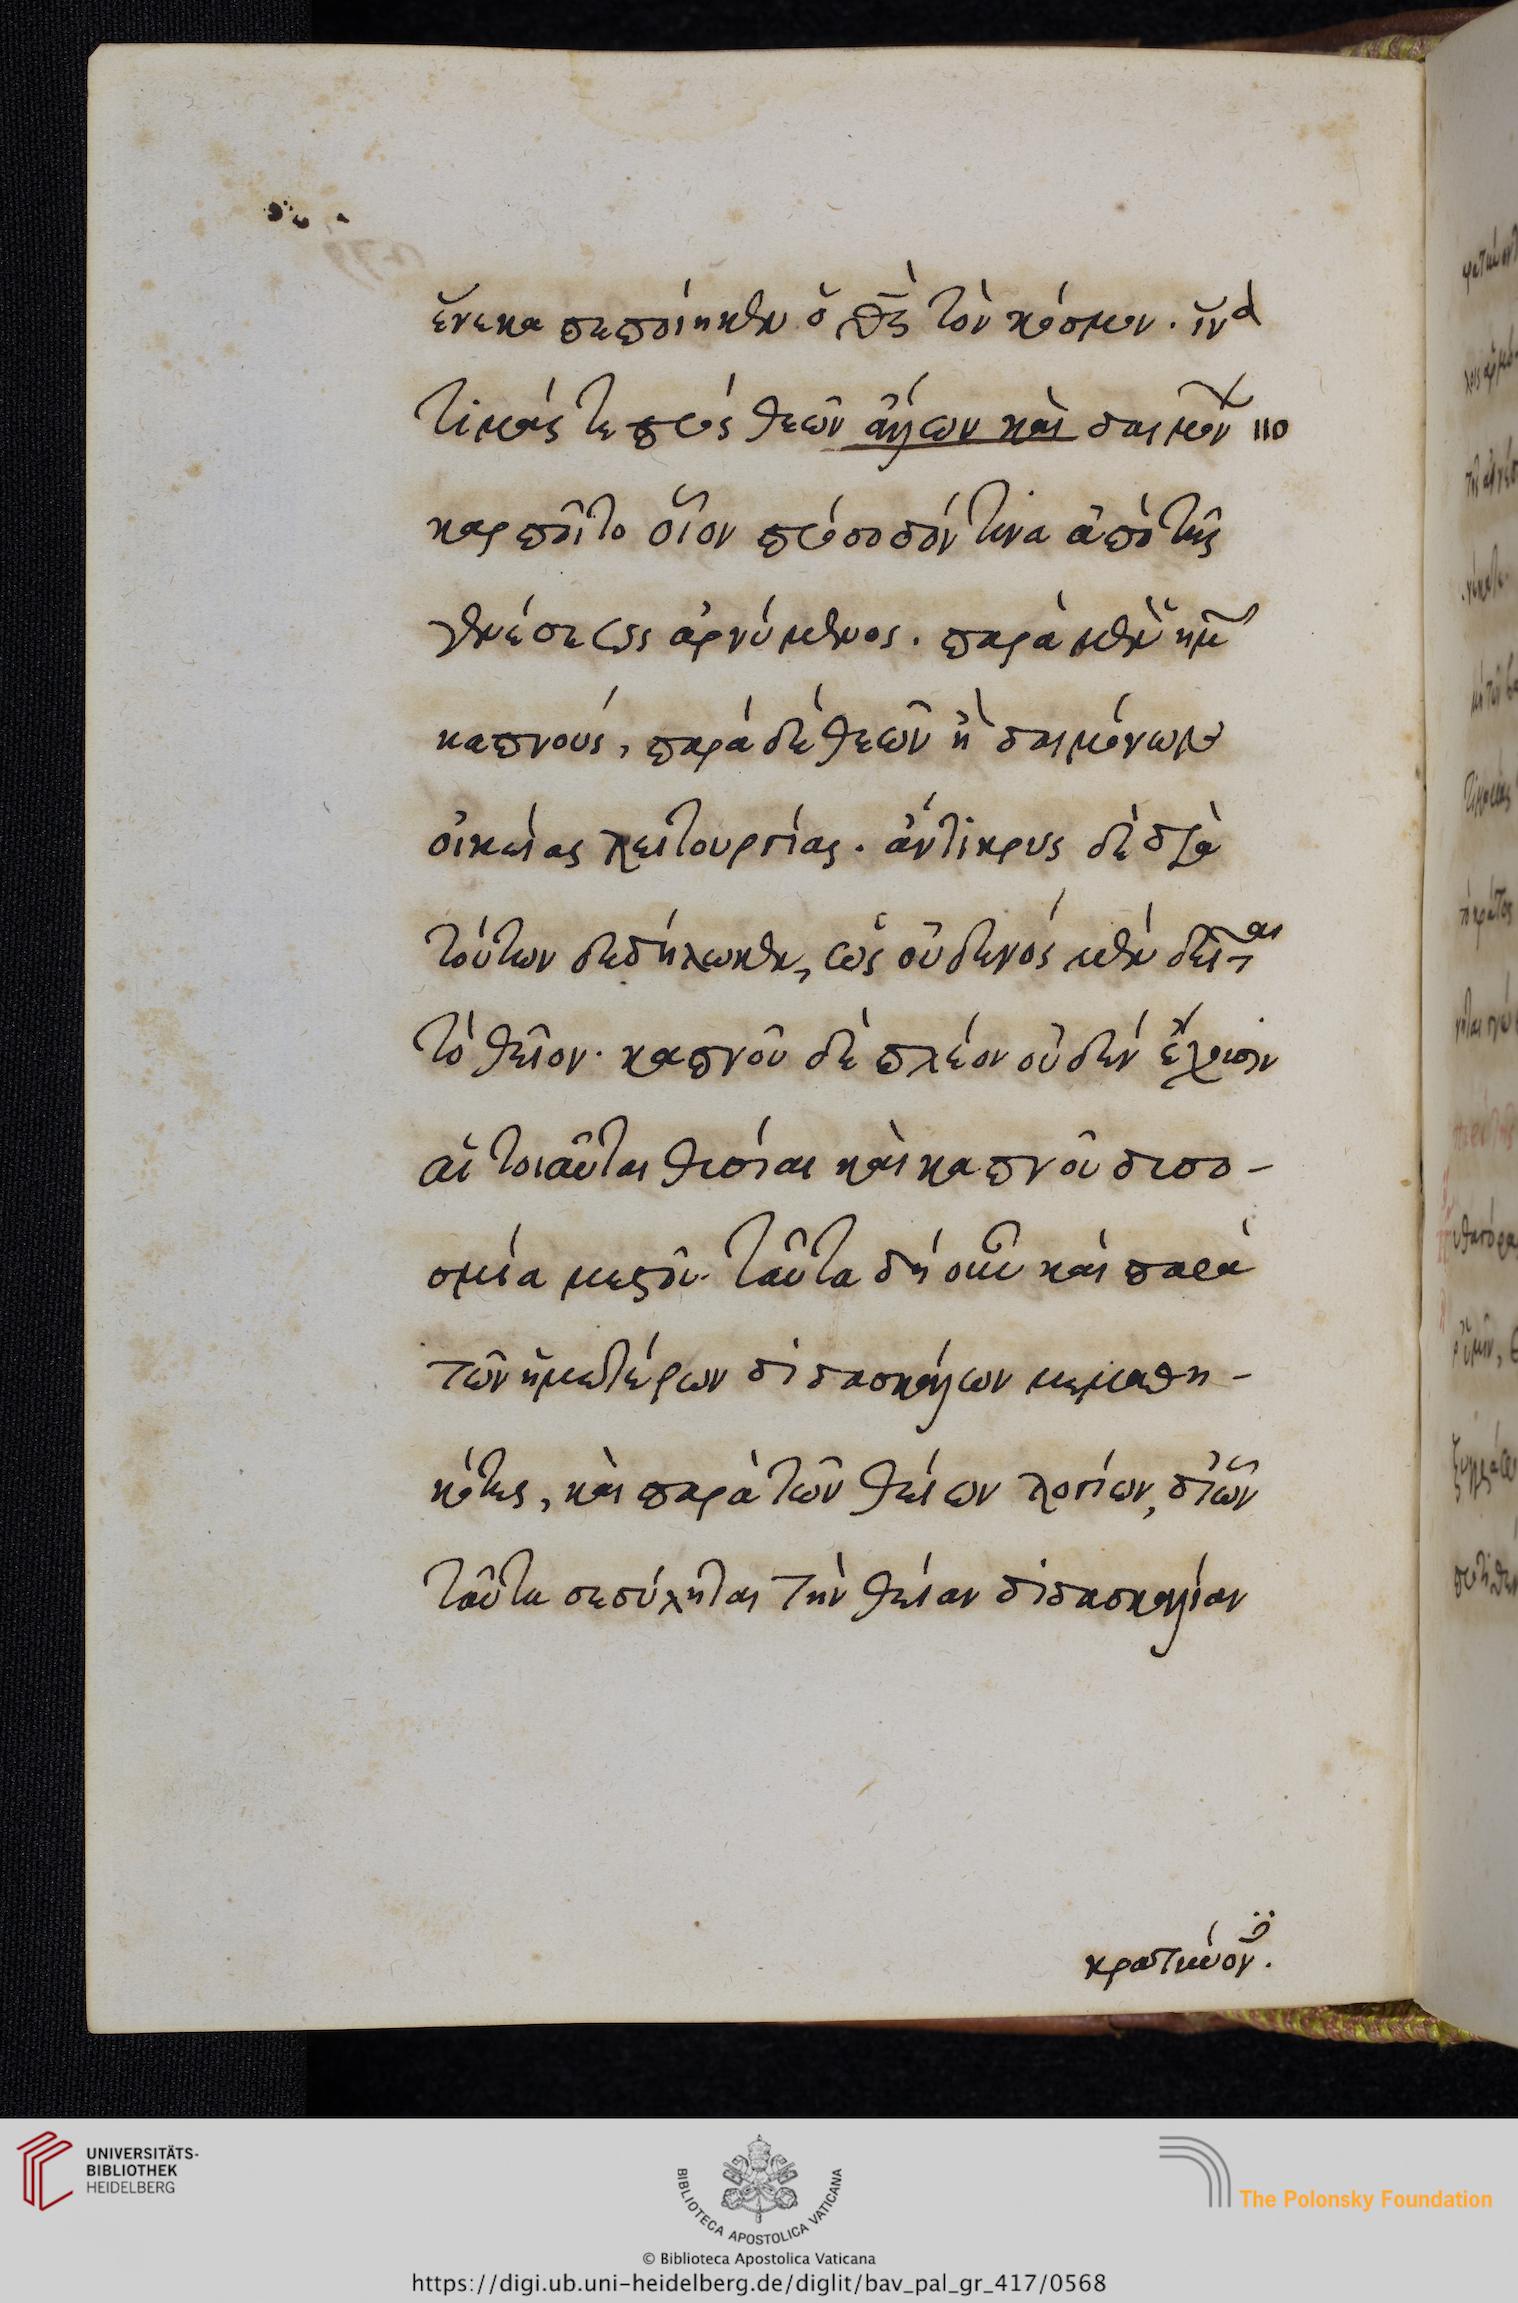 ἕνεκα πεποίηκεν ὁ θς τὸν κόσμον. ἵνα
τιμάς τε πρὸς θεῶν ἄλλων καὶ δαιμόν
καρποῖτο οἷον πρόσοδόν τινα ἀπὸ τῆς
γενέσεως ἀρνύμενος. παρὰ μὲν ἡμ
καπνούς, παρὰ δὲ θεῶν ἢ δαιμόνων
οἰκείας λειτουργίας. ἄντικρυς δὲ διὰ
τούτων δεδήλωκεν, ὡς οὐδενός μὲν δεῖται
τὸ θεῖον· καπνοῦ δὲ πλέον οὐδὲν ἔχουσιν
αἱ τοιαῦται θυσίαι καὶ καπνοῦ δυσο-
σμία ταῦτα δὴ οὖν καὶ παρὰ
τῶν ἡμετέρων διδασκάλων μεμαθη-
κότες, καὶ παρὰ τῶν θείων λογίων, δι' ὧν
ταῦτα σεσύληται τὴν θείαν διδασκαλίαν
UNIVERSITÄTS-
BIBLIOTHEK
HEIDELBERG
BIBLIOTECA APOSTOLICA VATICANA
The Polonsky Foundation
© Biblioteca Apostolica Vaticana
https://digi.ub.uni-heidelberg.de/diglit/bav_pal_gr_417/0568